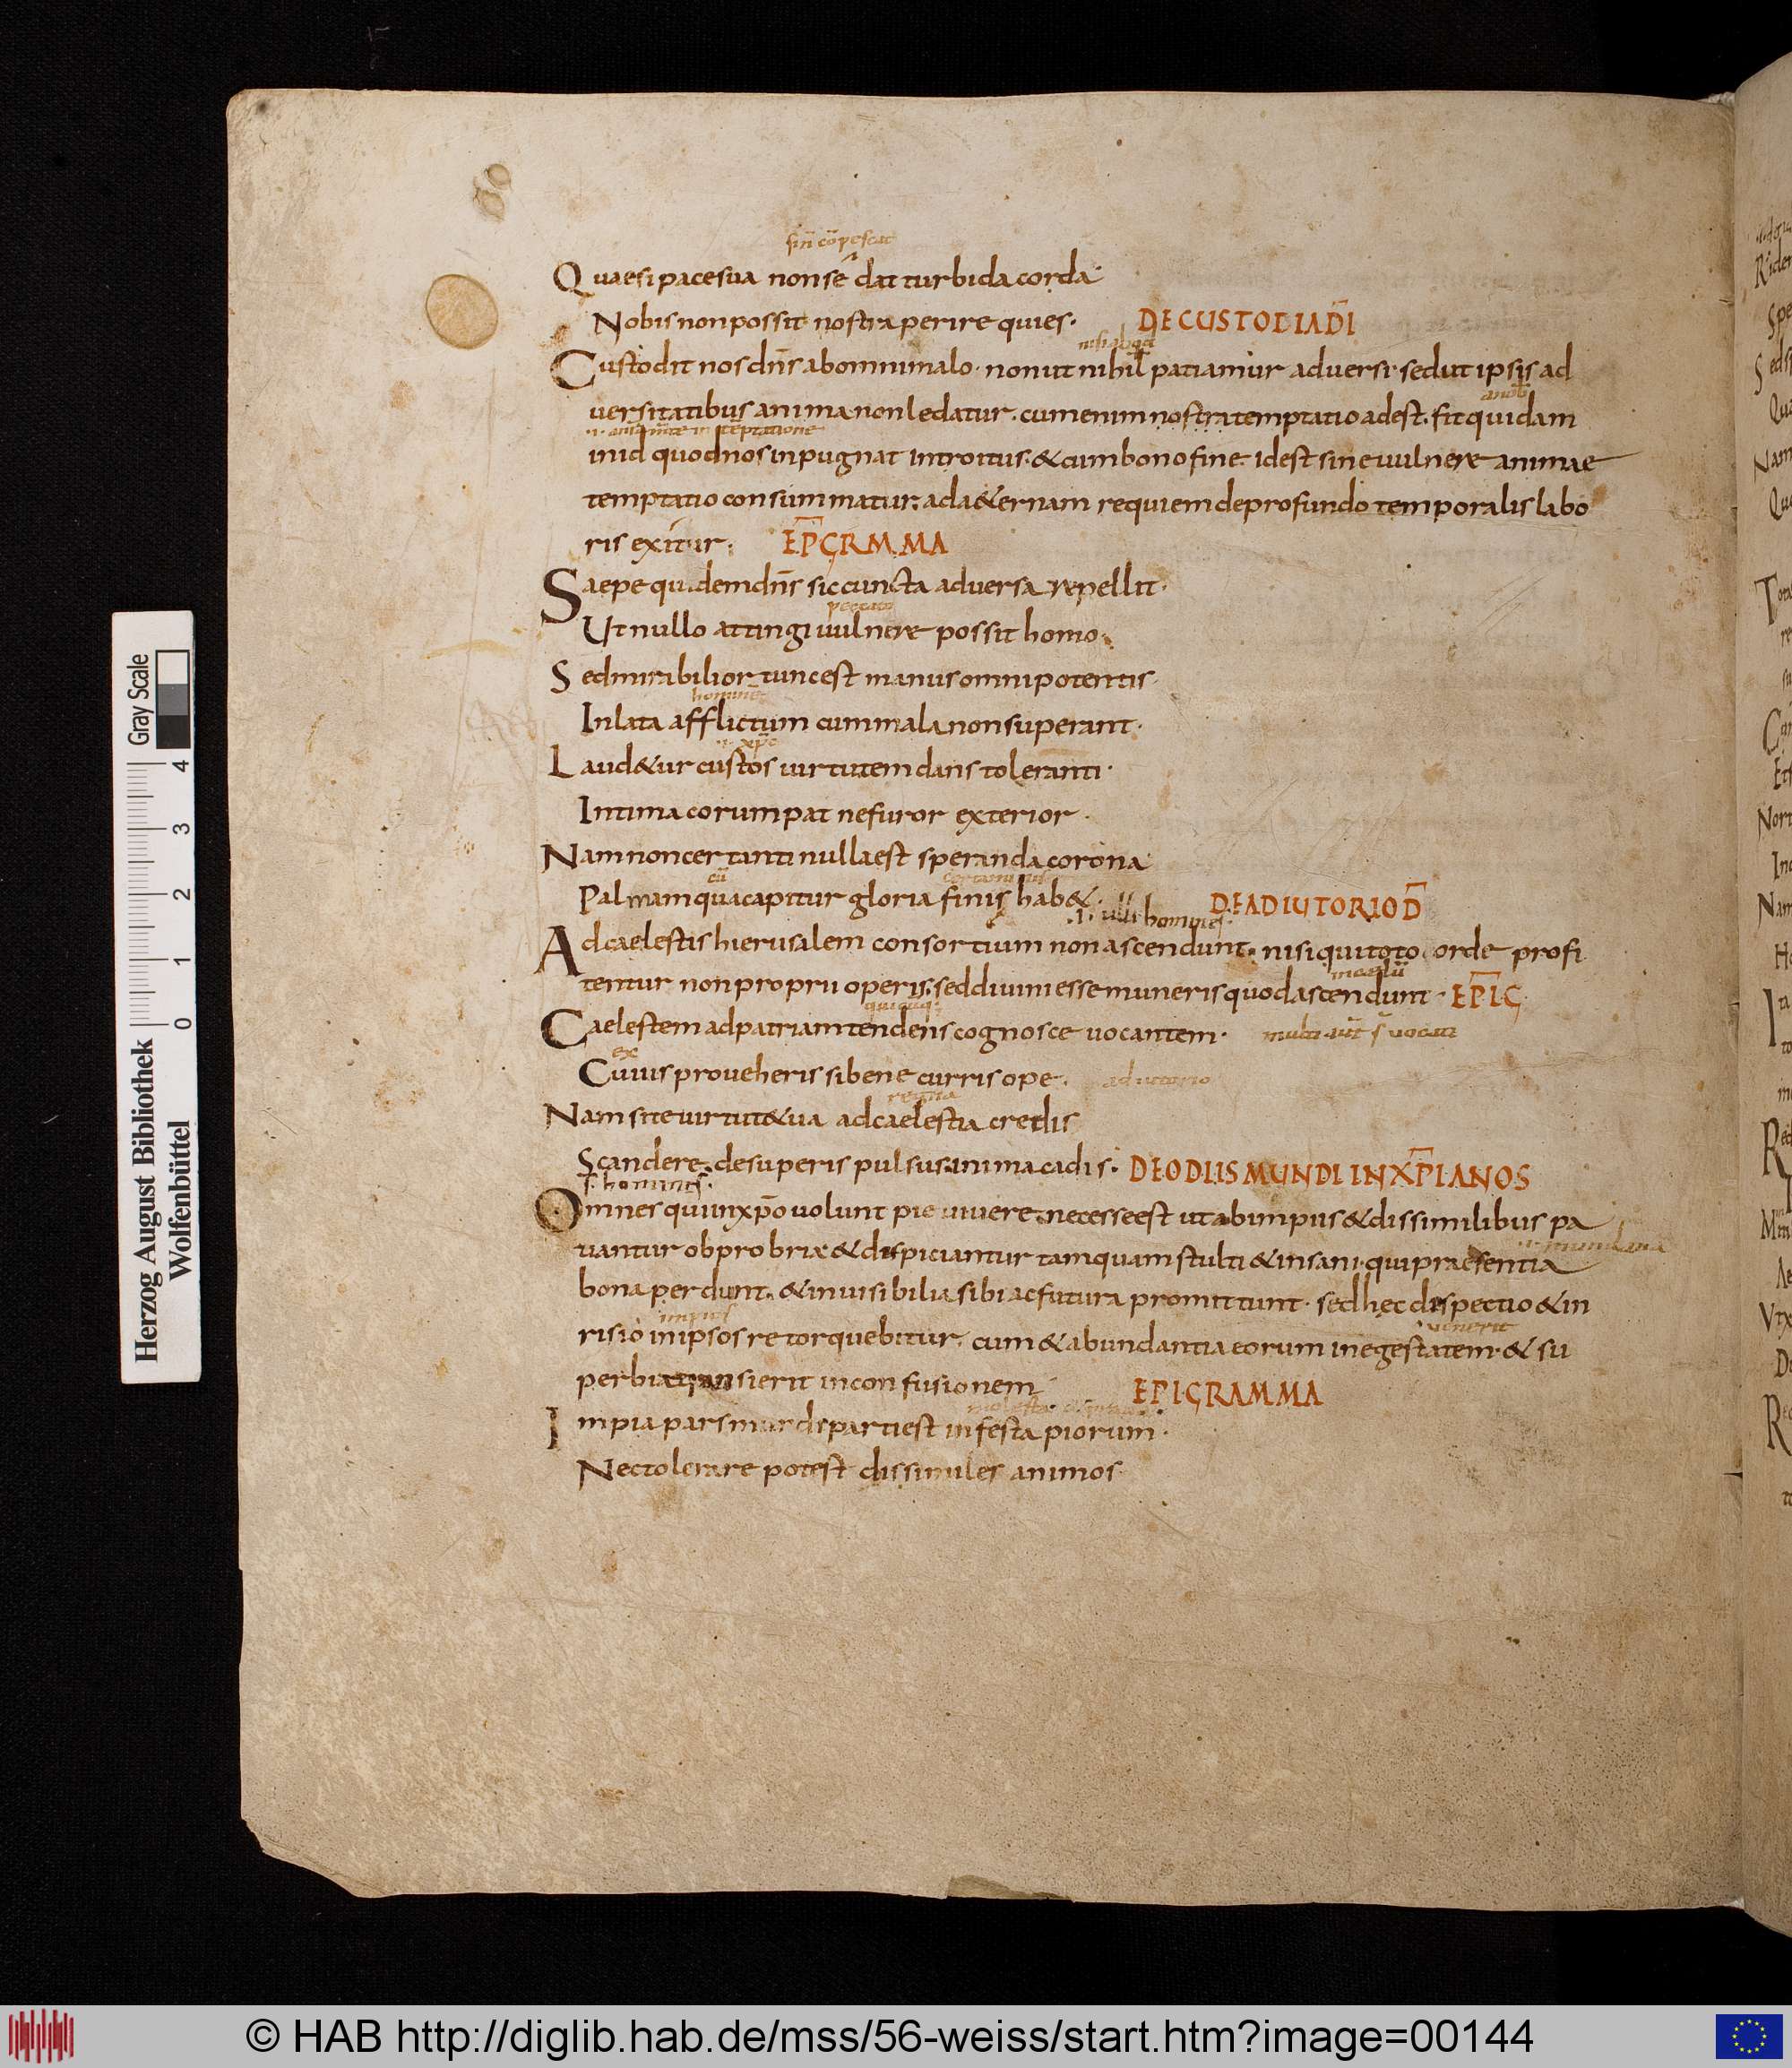 Quae si pace sua non se dat turbida corda·
Nobis non possit nostra perire quies· DE CUSTODIA D̄I
Custodit nos dn̄s ab omni malo· non ut nihil patiamur adversi· sed ut ipsis ad
versitatibus anima non ledatur· cum enim nostra temptatio adest· fit quidam
in id quod nos inpugnat introitus· & cum bono fine· id est sine vulnere animae
temptatio consummatur· ad a&ernam requiem de profundo temporalis labo
ris exitur· EPGRMMA
Saepe quidem dn̄s sic cuncta adversa repellit·
peccato
Ut nullo attingi vulnere possit homo·
Sed mirabilior tunc est manus omnipotentis·
homine
Inlata afflictum cum mala non superant·
xp̄c
Laud&ur custos virtutem dans toleranti·
Intima corumpat ne furor exterior·
Nam non certanti nulla est speranda corona·
cū
Palmam qua capitur gloria finis hab&· DE ADIUTORIO D̄
·i· illi homines
Ad caelestis hierusalem consortium non ascendunt· nisi qui toto corde profi
tentur non proprii operis· sed divini esse muneris quod ascendunt· EPIG
Caelestem ad patriam tendens cognosce vocantem·
ex
Cuius proveheris si bene curris ope· adiutorio
regna
Nam si te virtut& ua ad caelestia credis
Scandere· de superis pulsus in ima cadis· DE ODIIS MUNDI IN XP̄IANOS
s· homines·
Omnes qui in xp̄o volunt pie vivere· necesse est ut ab impiis & dissimilibus pa
·i· mundana
vantur obprobria & dispiciantur tamquam stulti & insani· qui praesentia
bona perdunt· & invisibilia sibi ac futura promittunt· sed hęc dispectio & in
impios venerit
risio in ipsos retorquebitur· cum & abundantia eorum in egestatem· & su
perbia transierit in confusionem· EPIGRAMMA
Impia pars mundi parti est infesta piorum·
Nec tolerare potest dissimiles animos·
Herzog August Bibliothek
Wolfenbüttel
0 1 2 3 4
Gray Scale
© HAB http://diglib.hab.de/mss/56-weiss/start.htm?image=00144